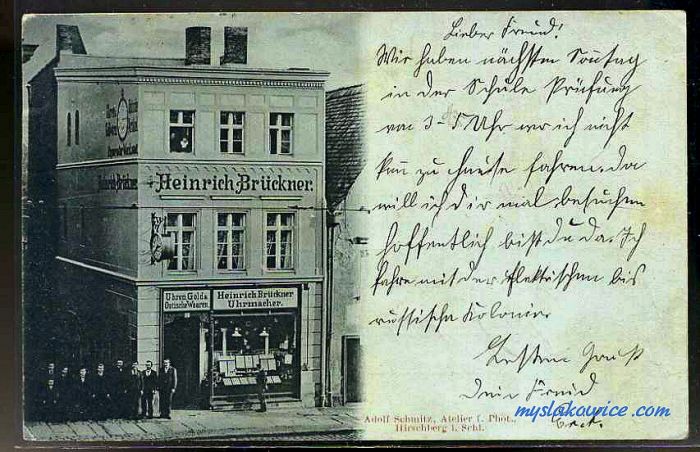 Lieber Freund!
Wir haben nächsten Sonntag
in der Schule Prüfung
von 3-5 Uhr wo ich nicht
kann zu Hause fahren. Da
will ich dir mal besuchen
hoffentlich bist du da. Ich
fahre mit der Elektrischen bis
russische Kolonie.
Besten Gruß
Dein Freund
Heinrich Brückner.
Heinrich Brückner
Uhren, Gold &
Optische Waaren.
Heinrich Brückner
Uhrmacher.
Adolf Schmitz, Atelier f. Phot.,
Hirschberg i. Schl.
myslakowice.com